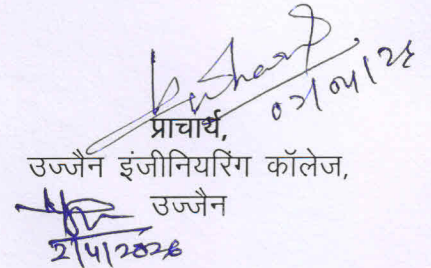 02/04/26
प्राचार्य,
उज्जैन इंजीनियरिंग कॉलेज,
उज्जैन
2/4/2026